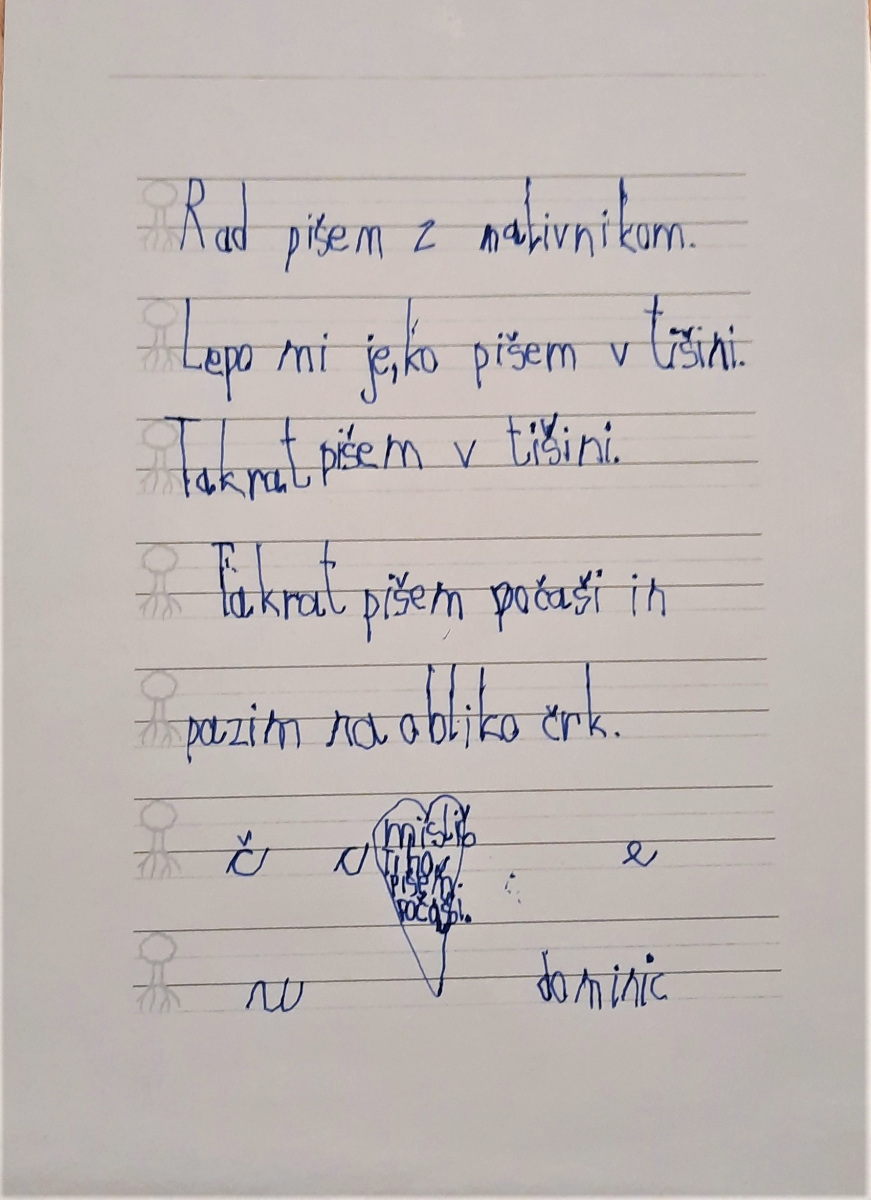 Rad pišem z nalivnikom.
Lepo mi je, ko pišem v tišini.
Takrat pišem v tišini.
Takrat pišem počaši in
pazim na obliko črk.
č c e
mišlib
tiho
pišem.
počaši.
dominic